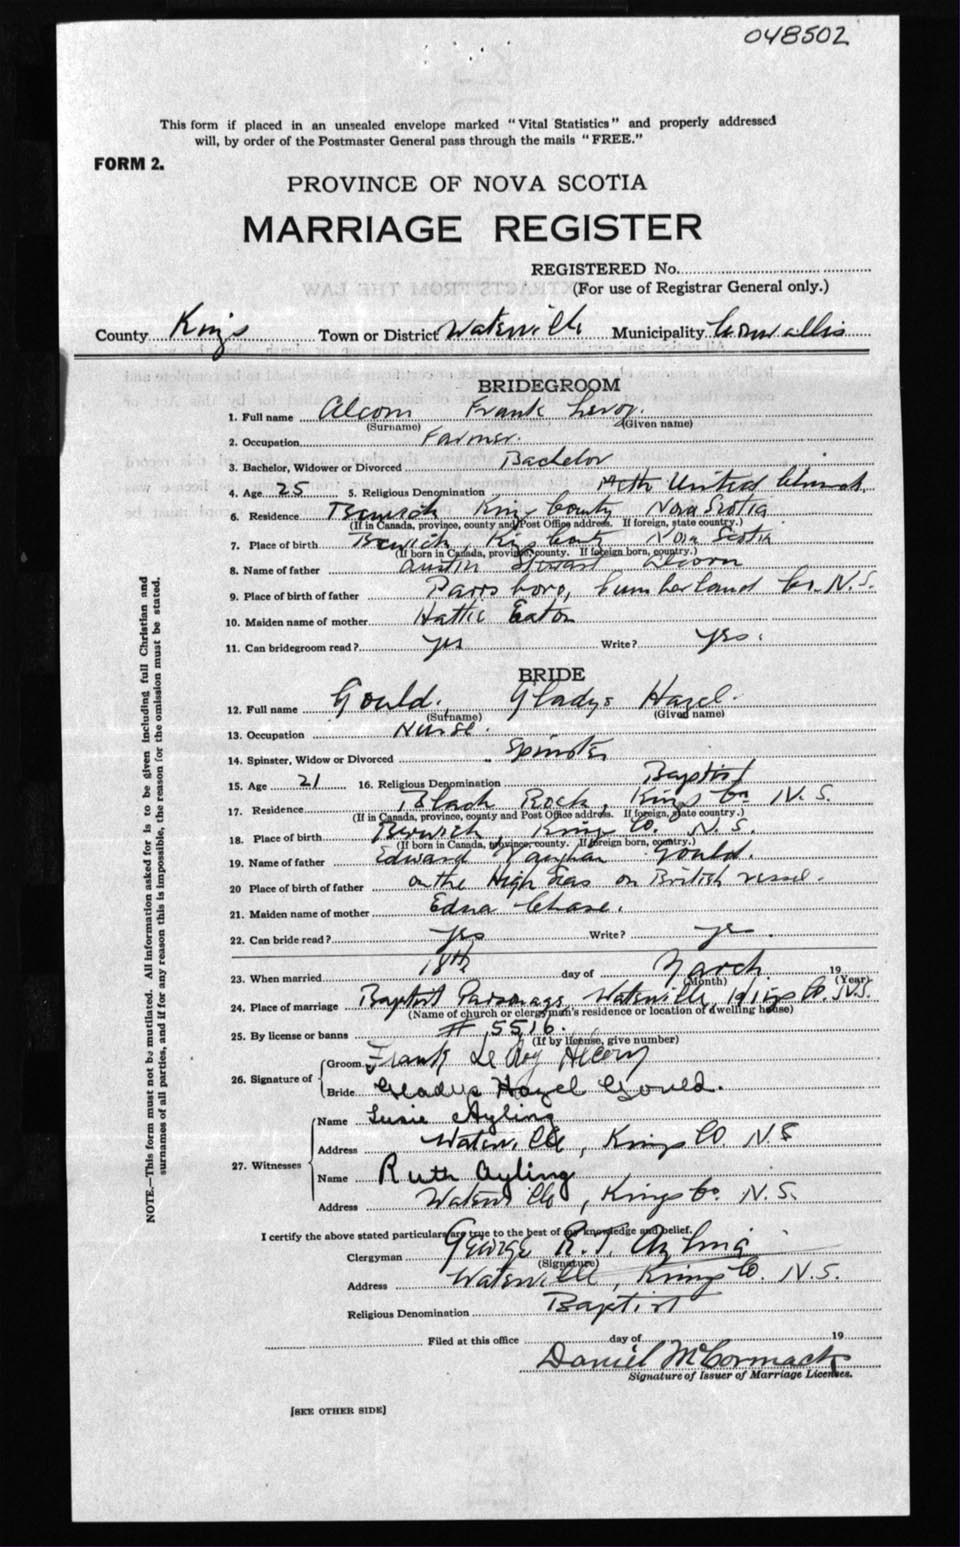 048502
This form if placed in an unsealed envelope marked "Vital Statistics" and properly addressed
will, by order of the Postmaster General pass through the mails "FREE."
FORM 2.
PROVINCE OF NOVA SCOTIA
MARRIAGE REGISTER
REGISTERED No.
(For use of Registrar General only.)
County Kings Town or District Waterville Municipality Cornwallis
BRIDEGROOM
1. Full name Alcorn Frank Leroy.
(Surname) (Given name)
2. Occupation Farmer.
3. Bachelor, Widower or Divorced Bachelor
4. Age 25 5. Religious Denomination Meth United Church
6. Residence Berwick Kings County Nova Scotia
(If in Canada, province, county and Post Office address. If foreign, state country.)
7. Place of birth Berwick, Kings County Nova Scotia
(If born in Canada, province, county. If foreign born, country.)
8. Name of father Austin Stewart Alcorn
9. Place of birth of father Parrsboro, Cumberland Co. N.S.
10. Maiden name of mother Hattie Eaton
11. Can bridegroom read? yes Write? yes.
BRIDE
12. Full name Gould. Gladys Hazel.
(Surname) (Given name)
13. Occupation Nurse.
14. Spinster, Widow or Divorced Spinster
15. Age 21 16. Religious Denomination Baptist
17. Residence Black Rock, Kings Co N.S.
(If in Canada, province, county and Post Office address. If foreign, state country.)
18. Place of birth Berwick, Kings Co. N.S.
(If born in Canada, province, county. If foreign born, country.)
19. Name of father Edward Vaughan Gould.
20 Place of birth of father on the High Seas on British vessel.
21. Maiden name of mother Edna Chase.
22. Can bride read? yes Write? yes.
23. When married 18th day of March 19
(Month) (Year)
24. Place of marriage Baptist Parsonage, Waterville, Kings Co. N.S.
(Name of church or clergyman's residence or location of dwelling house)
25. By license or banns # 5516.
(If by license, give number)
26. Signature of
Groom Frank LeRoy Alcorn
Bride Gladys Hazel Gould.
27. Witnesses
Name Susie Ayling
Address Waterville, Kings Co. N.S
Name Ruth Ayling
Address Waterville, Kings Co. N.S.
I certify the above stated particulars are true to the best of my knowledge and belief.
Clergyman George R. T. Ayling
(Signature)
Address Waterville, Kings Co. N.S.
Religious Denomination Baptist
Filed at this office day of 19
Daniel McCormack
Signature of Issuer of Marriage Licenses.
[SEE OTHER SIDE]
NOTE.—This form must not be mutilated. All information asked for is to be given including full Christian and
surnames of all parties, and if for any reason this is impossible, the reason for the omission must be stated.